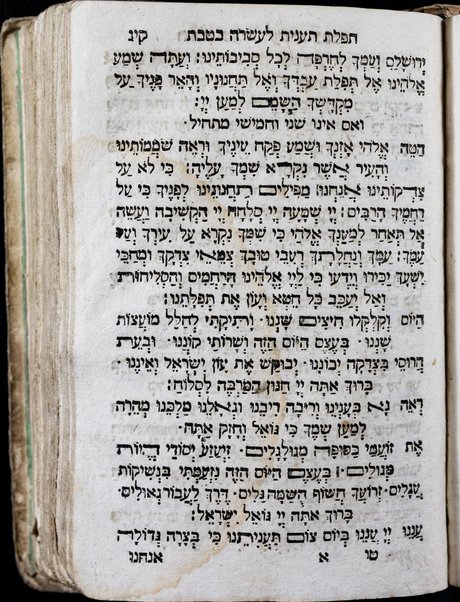 תפלת תענית לעשרה בטבת קיג
ירושלם ועמך לחרפה לכל סביבותינו: ועתה שמע
אלהינו אל תפלת עבדך ואל תחנוניו והאר פניך על
מקדשך השמם למען יי:
ואם אינו שני וחמישי מתחיל.
הטה אלהי אזנך ושמע פקח עיניך וראה שממותינו
והעיר אשר נקרא שמך עליה: כי לא על
צדקותינו אנחנו מפילים תחנונינו לפניך כי על
רחמיך הרבים: יי שמעה יי סלחה יי הקשיבה ועשה
אל תאחר למענך אלהי כי שמך נקרא על עירך ועל
עמך: עמך ונחלתך רעבי טובך צמאי צדקך ומחכי
ישעך יכירו וידעו כי ליי אלהינו הרחמים והסליחות
ואל יעכב כל חטא ועון את תפלתנו:
היום וקלקלו חיצים שננו. ורתיקתי לחלל מועצות
שננו. בעצם היום הזה ושרותי קוננו. ובעת
הרוסי בצדקה יכוננו. ויבוקש את עון ישראל ואיננו.
ברוך אתה יי חנון המרבה לסלוח:
ראה נא בענינו וריבה ריבנו וגאלנו מלכנו מהרה
למען שמך כי גואל וחזק אתה.
את זועמי בסופה מגולגלים. זועזע יסודי היות
מגולים. בעצם היום הזה נזעמתי בנשיקות
עגלים. זרועך חשוף השמה גלים. דרך לעבור גאולים.
ברוך אתה יי גואל ישראל:
עננו יי עננו ביום צום תעניתנו כי בצרה גדולה
טו א אנחנו